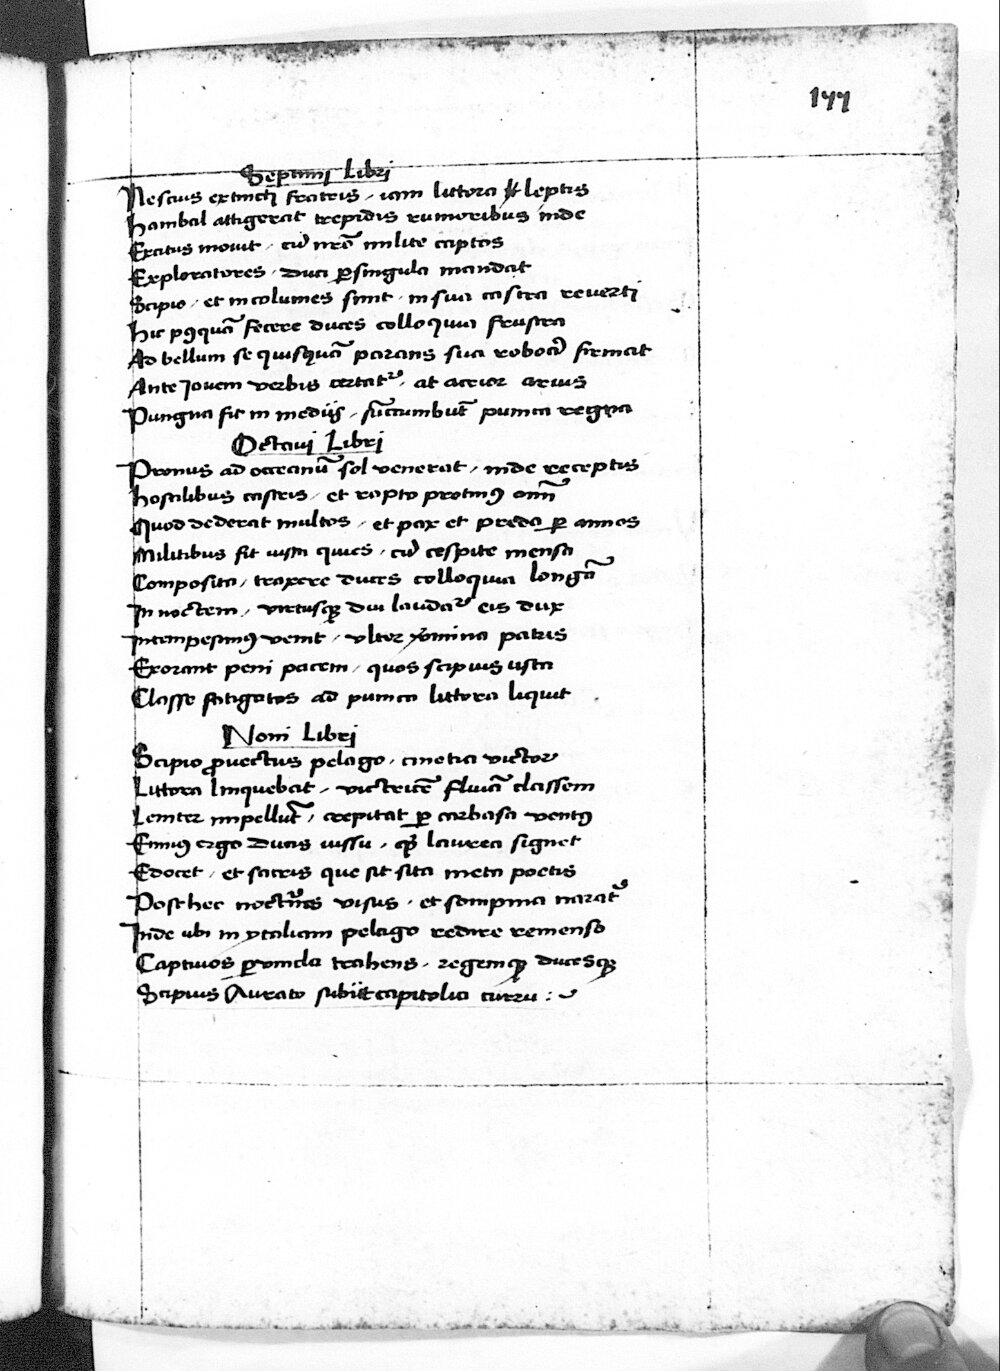 177
Septimi Libri
Nescius extincti fratris, iam littora leptis
hanibal attigerat trepidis rumoribus inde
Excitus mouit, cū nrō milite captos
Exploratores, duci ꝑ singula mandat
Scipio, et incolumes sunt, in sua castra reuerti
hic pꝰqua᷉ fecere duces colloquia frustra
Ad bellum se quisquā parans sua robora firmat
Ante Jouem uerbis certatᷣ, at acrior armis
Pungna fit in medijs, sūccumbūt punica regna
Octaui Libri
Pronus ad occeanū sol uenerat, inde receptis
hostilibus castris, et rapto protinꝰ om̄i
Quod dederat multos, et pax et preda ꝑ annos
Militibus fit iusta quies, cū cespite mensa
Composita, traxere duces colloquia longā
In noctem, uirtusqꝫ diu laudatᷣ eis dux
Intempestiuꝰ uenit, ulter nomina patris
Exorant peni pacem, quos scipius usta
Classe fatigatos ad punica littora liquit
Noni Libri
Scipio ꝓuectus pelago, cinctia uictor
Littora linquebat, uictricē fluuiā classem
Leniter impellūt, crepitat ꝑ carbasa uentꝰ
Enniꝰ ergo ducis iussu, quid laurea signet
Edocet, et sacris que sit sita meta poetis
Post hec nocturnos uisus, et sompnia naratᷣ
Inde ubi in ytaliam pelago redire remenso
Captiuos ꝑ uincla trahens, regemqꝫ ducesqꝫ
Scipius Aurato subijt capitolia curru :~